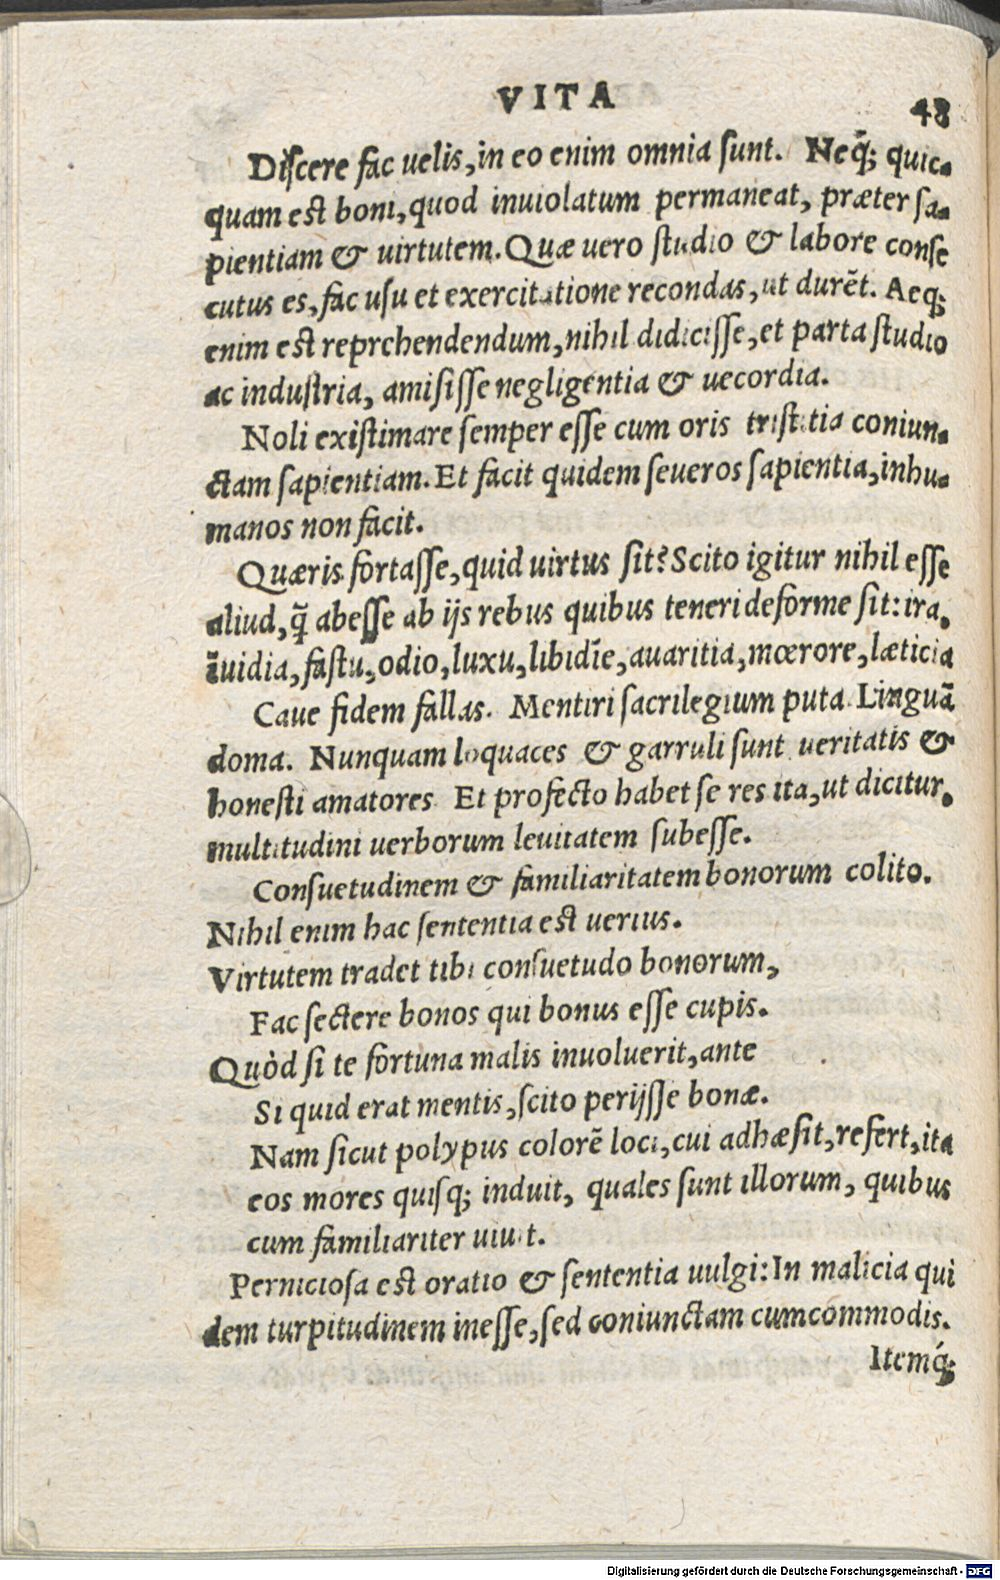 VITA
48
Diſcere fac uelis, in eo enim omnia ſunt. Neq́; quic-
quam est boni, quod inuiolatum permaneat, præter ſa-
pientiam & uirtutem. Quæ uero ſtudio & labore conſe
cutus es, fac uſu et exercitatione recondas, ut durēt. Aeq;
enim est reprehendendum, nihil didiciſſe, et parta ſtudio
ac induſtria, amiſiſſe negligentia & uecordia.
Noli exiſtimare ſemper eſſe cum oris triſtitia coniun-
ctam ſapientiam. Et facit quidem ſeueros ſapientia, inhu-
manos non facit.
Quæris fortaſſe, quid uirtus ſit? Scito igitur nihil eſſe
aliud, q̃ abeſſe ab ijs rebus quibus teneri deforme ſit: ira,
īuidia, faſtu, odio, luxu, libidīe, auaritia, mœrore, læticia
Caue fidem fallas. Mentiri ſacrilegium puta. Linguā
doma. Nunquam loquaces & garruli ſunt ueritatis &
honeſti amatores. Et profecto habet ſe res ita, ut dicitur,
multitudini uerborum leuitatem ſubeſſe.
Conſuetudinem & familiaritatem bonorum colito.
Nihil enim hac ſententia est uerius.
Virtutem tradet tibi conſuetudo bonorum,
Fac ſectere bonos qui bonus eſſe cupis.
Quòd ſi te fortuna malis inuoluerit, ante
Si quid erat mentis, ſcito perijſſe bonæ.
Nam ſicut polypus colorē loci, cui adhæſit, refert, ita
eos mores quiſq; induit, quales ſunt illorum, quibus
cum familiariter uiuit.
Pernicioſa est oratio & ſententia uulgi: In malicia qui
dem turpitudinem ineſſe, ſed coniunctam cum commodis.
Itemq́;
Digitalisierung gefördert durch die Deutsche Forschungsgemeinschaft - DFG